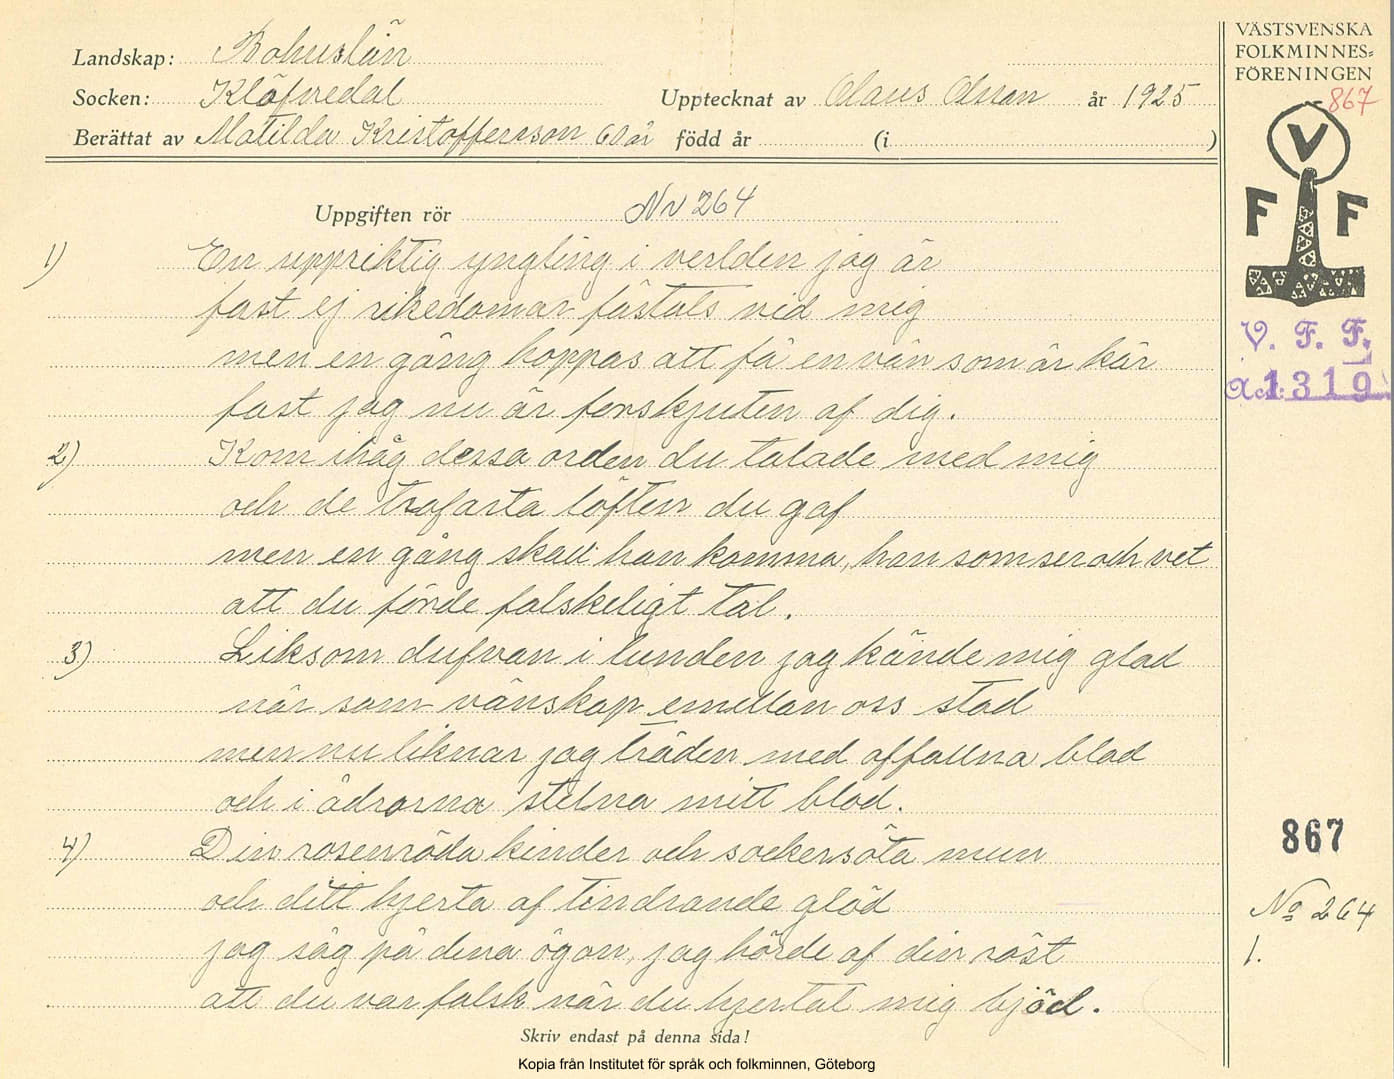 Landskap: Bohuslän
Socken: Klöfvedal
Upptecknat av Olaus Olsson år 1925
Berättat av Matilda Kristoffersson 60 år född år (i )
VÄSTSVENSKA
FOLKMINNES=
FÖRENINGEN
867
V
F F
V. F. F.
Acc: 1319
Uppgiften rör Nr 264
1) En uppriktig yngling i verlden jag är
fast ej rikedomar fästats vid mig
men en gång hoppas att få en vän som är kär
fast jag nu är forskjuten af dig.
2) Kom ihåg dessa orden du talade med mig
och de trofasta löften du gaf
men en gång skall han komma, han som ser och vet
att du förde falskeligt tal.
3) Liksom dufvan i lunden jag kände mig glad
när som vänskap emellan oss stod
men nu liknar jag träden med affallna blad
och i ådrorna stelna mitt blod.
4) Din rosenröda kinder och sockersöta mun
och ditt hjerta af tindrande glöd
jag såg på dina ögon, jag hörde af din röst
att du var falsk när du hjertat mig bjöd.
867
No 264
1.
Skriv endast på denna sida!
Kopia från Institutet för språk och folkminnen, Göteborg